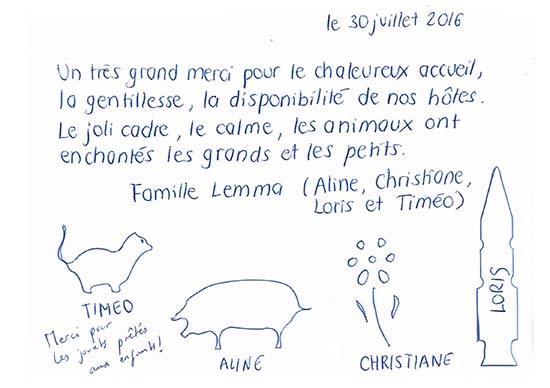 le 30 juillet 2016
Un très grand merci pour le chaleureux accueil,
la gentillesse, la disponibilité de nos hôtes.
Le joli cadre, le calme, les animaux ont
enchantés les grands et les petits.
Famille Lemma (Aline, Christiane,
Loris et Timéo)
TIMEO
Merci pour
les jouets prêtés
aux enfants!
ALINE
CHRISTIANE
LORIS